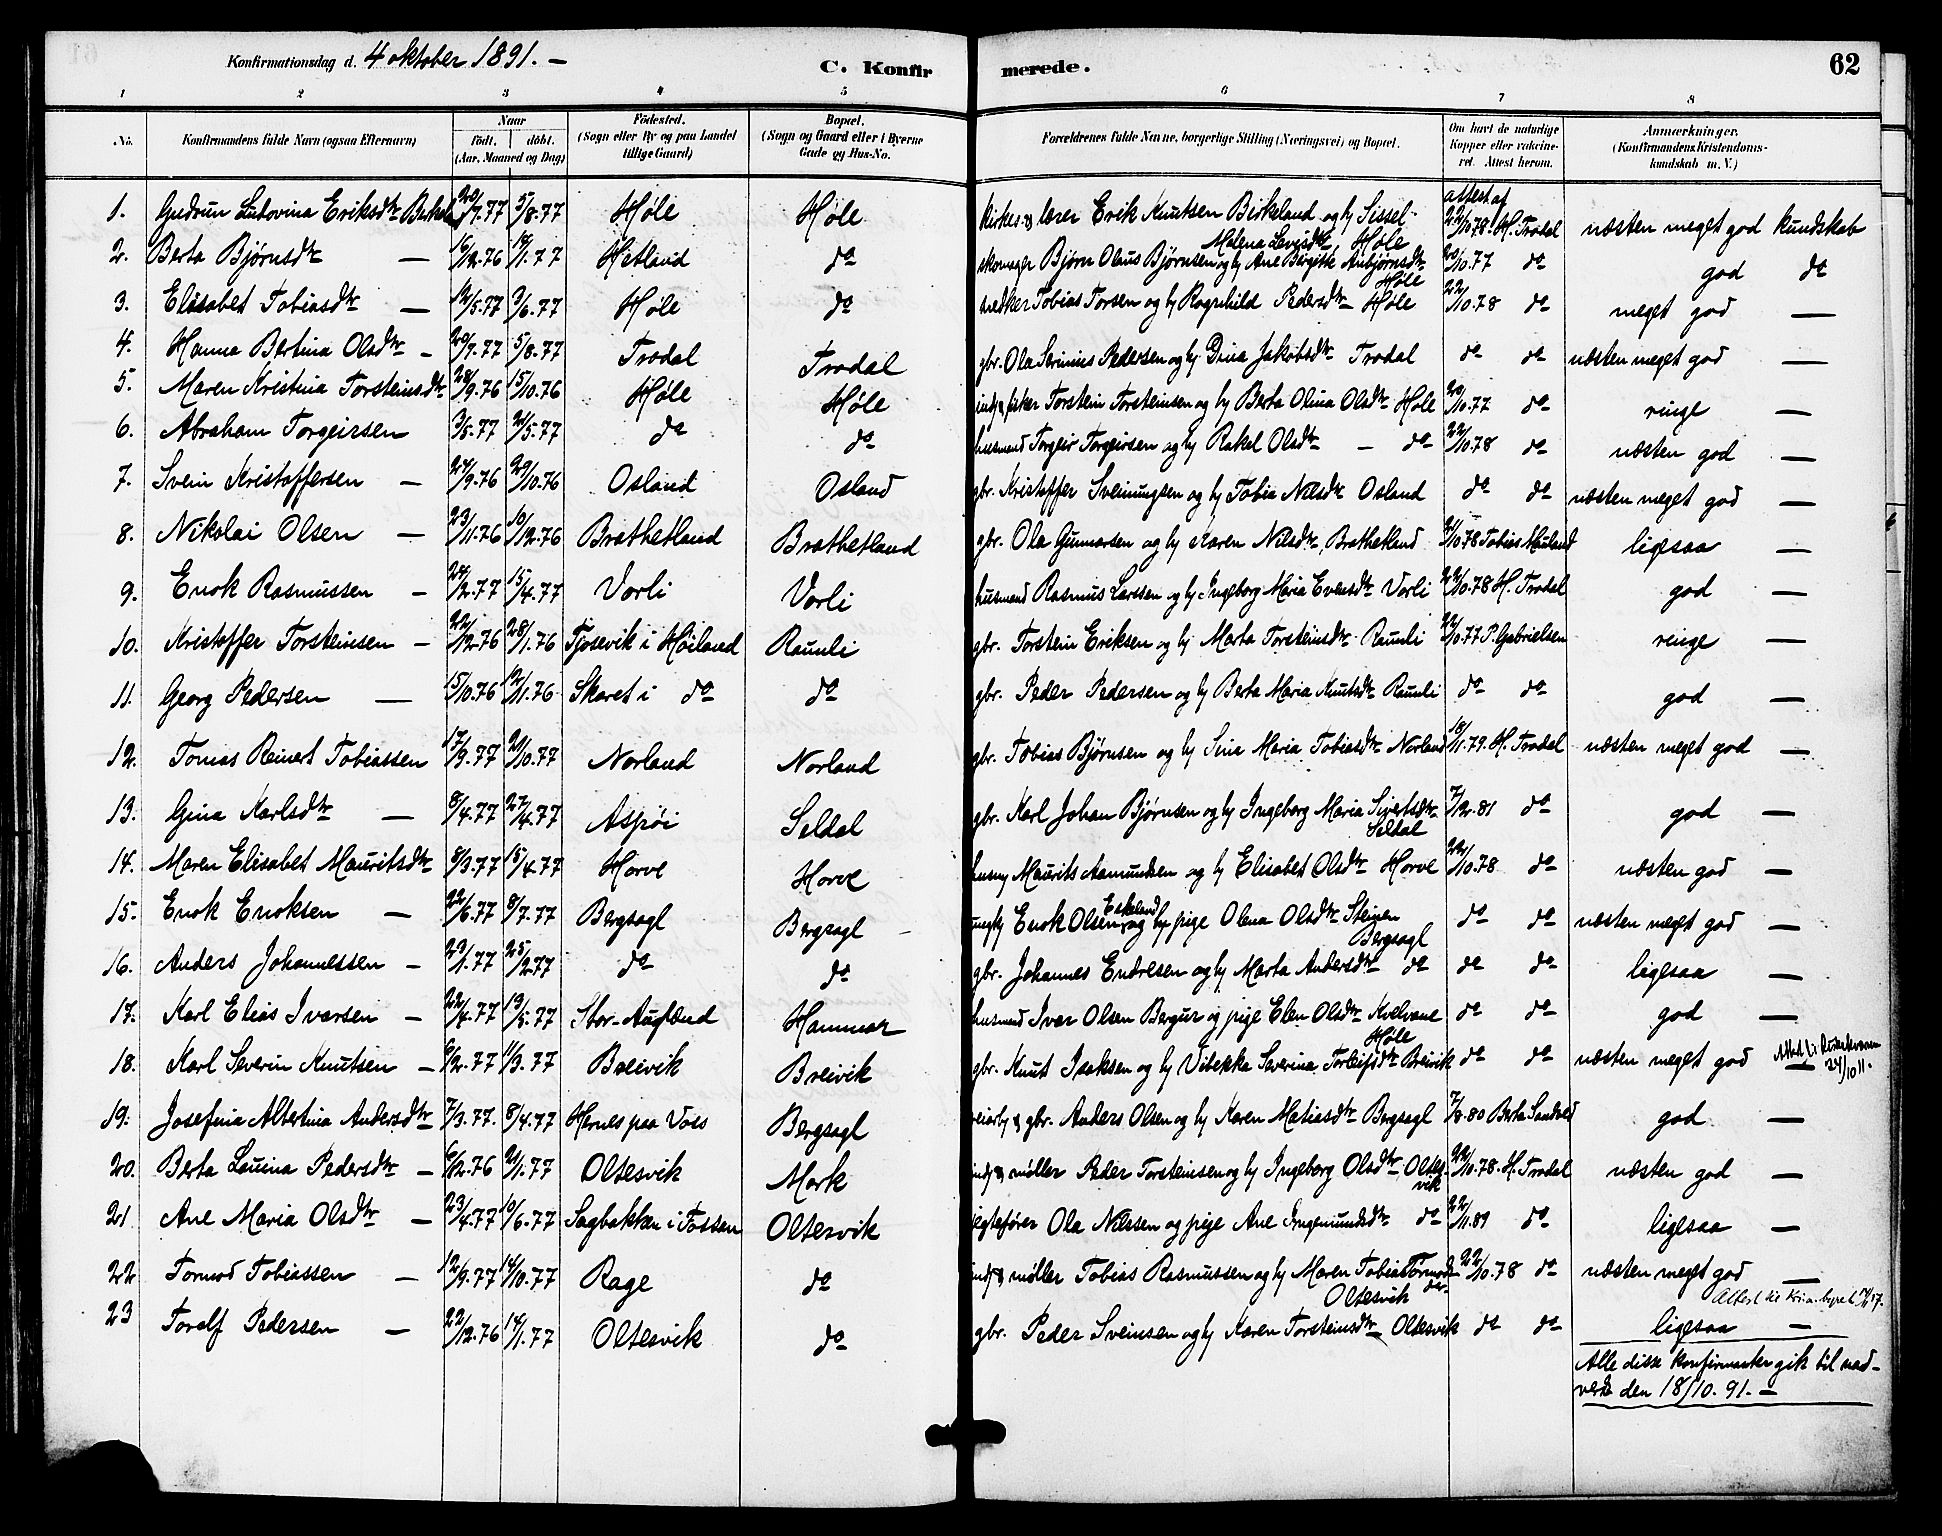 Konfirmationsdag d. 4 oktober 1891. —
C. Konfirmerede.
62
1 2 3 4 5 6 7 8
No. Konfirmandens fulde Navn (ogsaa Efternavn) Naar födt. döbt. (Aar, Maaned og Dag) Födested. (Sogn eller By og paa Landet tillige Gaard) Bopæl. (Sogn og Gaard eller i Byerne Gade og Hus-No. Forældrenes fulde Navne, borgerlige Stilling (Næringsvei) og Bopæl. Om havt de naturlige Kopper eller vakcineret. Attest herom. Anmærkninger. (Konfirmandens Kristendomskundskab m. V.)
1. Gudrun Ludovina Eriksdtr 20/7.77 5/8.77 Høle Høle kirkes. & lærer Erik Knutsen Birkeland og hu Sissel Malena Høle attest af 22/10.78. H. Trodal næsten meget god kundskab
2. Berta Bjørnsdtr — 16/12.76 14/1.77 Hetland do skomager Bjørn Olaus Bjørnsen og hu Ane Birgitte Høle 20/10.77 do god do
3. Elisabet Tobiasdtr — 12/5.77 3/6.77 Høle do Tobias Torsen og hu Ragnhild Pedersdtr Høle 22/10.78 do meget god —
4. Hanna Bertina Olsdtr — 20/7.77 5/8.77 Trodal Trodal gbr. Ola Serinius Pedersen og hu Dina Jakobsdtr Trodal do do næsten meget god —
5. Maren Kristina Torsteinsdtr 28/9.76 15/10.76 Høle Høle Torstein Torsteinsen og hu Berta Olina Olsdtr Høle 20/10.77 do ringe —
6. Abraham Torgeirsen 3/5.77 21/5.77 do do husmand Torgeir Torgeirsen og hu Rakel Olsdtr — do 22/10.78 do næsten god —
7. Svein Kristoffersen — 24/9.76 29/10.76 Osland Osland gbr. Kristoffer Sveinungsen og hu Tobia Nilsdtr Osland do do næsten meget god —
8. Nikolai Olsen — 23/11.76 10/12.76 Brathetland Brathetland gbr. Ola Gunnarsen og hu Karen Nilsdtr, Brathetland 21/10.78 Tobias næsten ligesaa —
9. Enok Rasmussen — 24/2.77 15/4.77 Vorli Vorli husmand Rasmus Larssen og hu Ingeborg Maria Evensdtr Vorli 22/10.78 H. Trodal god —
10. Kristoffer Torsteinsen — 22/12.76 28/1.76 Tjosevik i Høiland Raunli gbr. Torstein Eriksen og hu Marta Torsteinsdtr Raunli 22/10.77 P. Gabrielsen ringe —
11. Georg Pedersen — 15/10.76 12/11.76 Skaret i do do gbr. Peder Pedersen og hu Berta Maria Knutsdtr Raunli do do god —
12. Tomas Reinert Tobiassen 17/9.77 29/10.77 Norland Norland gbr. Tobias Bjørnsen og hu Sina Maria Tobiasdtr Norland 18/11.79. H. Trodal næsten meget god —
13. Gina Karlsdtr — 8/4.77 27/4.77 Aspøi Seldal gbr. Karl Johan Bjørnsen og hu Ingeborg Maria Sivertsdtr Seldal 7/12.81 do god —
14. Maren Elisabet Mauritsdtr 8/3.77 15/4.77 Horve Horve Maurits Aamundsen og hu Elisabet Olsdtr Horve 22/10.78 do næsten god —
15. Enok Enoksen — 22/6.77 8/7.77 Bergsagl Bergsagl ungk Enok Olsen Eskeland og pige Olena Olsdtr Steinen Bergsagl do do næsten meget god —
16. Anders Johannessen — 23/1.77 25/2.77 do do gbr. Johannes Endresen og hu Marta Andersdtr do do do ligesaa —
17. Karl Elias Ivarsen — 22/4.77 13/5.77 Stor-Auglænd Hammar husmand Ivar Olsen Bergur og pige Elen Olsdtr Kvelvane Høle do do god —
18. Karl Severin Knutsen — 6/2.77 11/3.77 Breivik Breivik gbr. Knut Isaksen og hu Vibekka Severina Torleifsdtr Breivik do do næsten meget god — 24/10 11.
19. Josefina Albertina Andersdtr 7/3.77. 8/4.77 Hernes paa Voss Bergsagl gbr. Anders Olsen og hu Karen Matiasdtr Bergsagl 7/8.80 Berta Sandved god —
20. Berta Lausina Pedersdtr — 6/12.76 21/1.77 Oltesvik Mork møller Peder Torsteinsen og hu Ingeborg Olsdtr Oltesvik 22/10.78. H. Trodal næsten god —
21. Ane Maria Olsdtr — 23/4.77 10/6.77 Sagbakken i Fossan Oltesvik jegtefører Ola Nilssen og pige Ane Ingemundsdtr do 22/11.89 do ligesaa —
22 Tormod Tobiassen — 12/9.77 14/10.77 Rage do møller Tobias Rasmussen og hu Maren Oltesvik 22/10.78 do næsten meget god —
23 Torolf Pedersen — 22/12.76 14/1.77 Oltesvik do gbr. Peder Sveinsen og hu Karen Torsteinsdtr Oltesvik do do ligesaa —
Alle disse konfirmanter gik til nad-
verd den 18/10.91. —